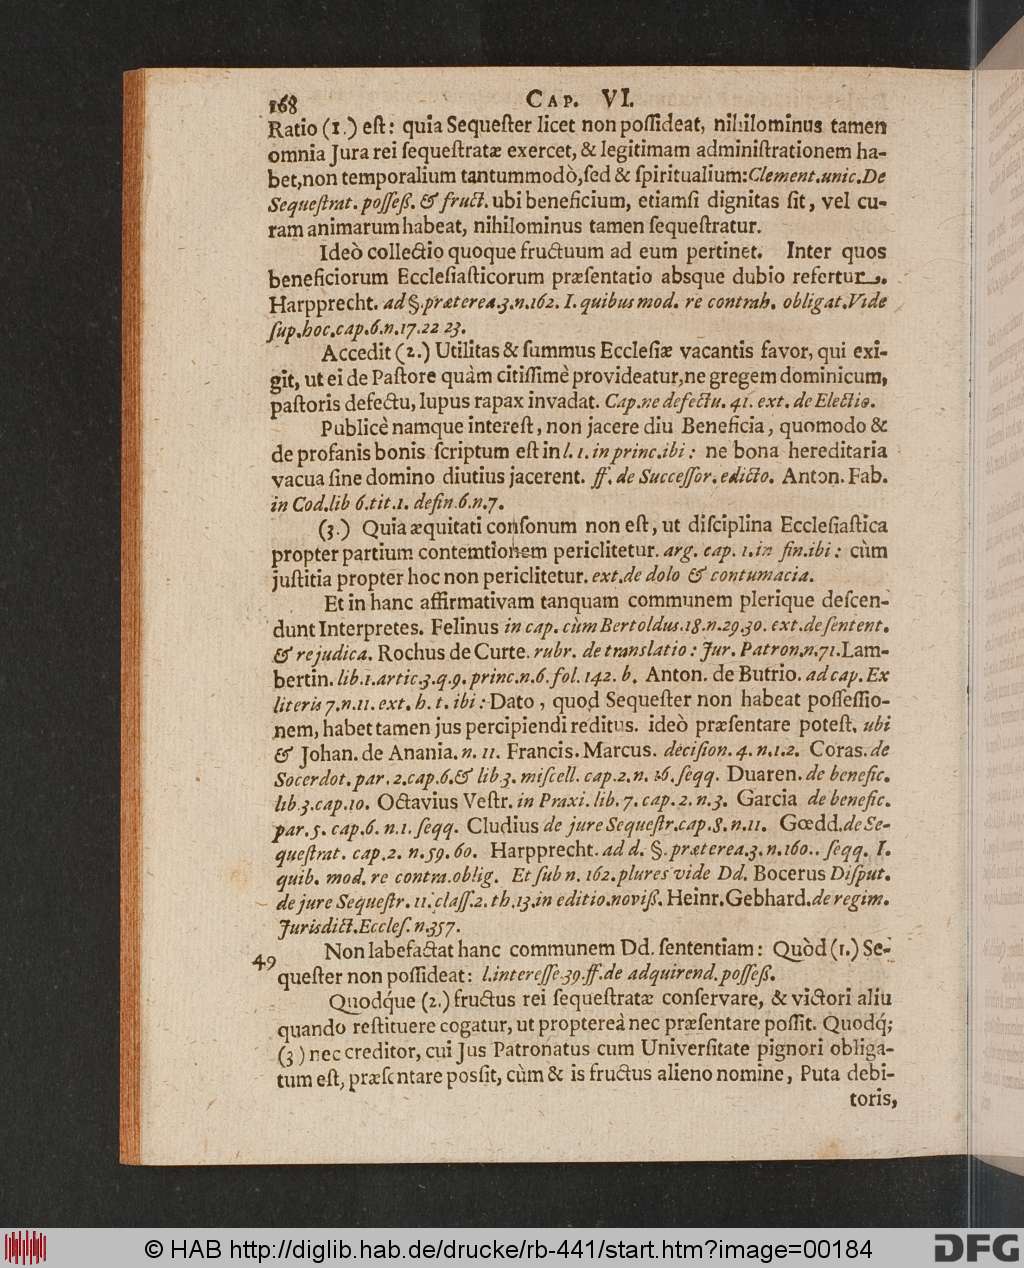 168 CAP. VI.
Ratio (1.) eſt: quia Sequeſter licet non poſſideat, nihilominus tamen
omnia Jura rei ſequeſtratæ exercet, & legitimam adminiſtrationem ha-
bet,non temporalium tantummodò,ſed & ſpiritualium:Clement.unic.De
Sequeſtrat. poſſeß. & fruct. ubi beneficium, etiamſi dignitas ſit, vel cu-
ram animarum habeat, nihilominus tamen ſequeſtratur.
Ideò collectio quoque fructuum ad eum pertinet. Inter quos
beneficiorum Eccleſiaſticorum præſentatio absque dubio refertur.
Harpprecht. ad §.præterea.3.n.162. I. quibus mod. re contrah. obligat.Vide
ſup.hoc.cap.6.n.17.22 23.
Accedit (2.) Utilitas & ſummus Eccleſiæ vacantis favor, qui exi-
git, ut ei de Paſtore quàm citiſſimè provideatur,ne gregem dominicum,
paſtoris defectu, lupus rapax invadat. Cap.ne defectu. 41. ext. de Electio.
Publicè namque intereſt, non jacere diu Beneficia, quomodo &
de profanis bonis ſcriptum eſt in l. 1. in princ.ibi : ne bona hereditaria
vacua ſine domino diutius jacerent. ff. de Succeſſor. edicto. Anton. Fab.
in Cod.lib 6.tit.1. defin.6.n.7.
(3.) Quia æquitati conſonum non eſt, ut diſciplina Eccleſiaſtica
propter partium contemtionem periclitetur. arg. cap. 1.in fin.ibi : cùm
juſtitia propter hoc non periclitetur. ext.de dolo & contumacia.
Et in hanc affirmativam tanquam communem plerique deſcen-
dunt Interpretes. Felinus in cap. cùm Bertoldus.18.n.29.30. ext.de ſentent.
& re judica. Rochus de Curte. rubr. de translatio : Jur. Patron.n.71.Lam-
bertin. lib.1.artic.3.q.9. princ.n.6.fol. 142. b. Anton. de Butrio. ad cap. Ex
literis 7.n.11. ext. h. t. ibi : Dato, quod Sequeſter non habeat poſſeſſio-
nem, habet tamen jus percipiendi reditus. ideò præſentare poteſt. ubi
& Johan. de Anania. n. 11. Francis. Marcus. deciſion. 4. n.1.2. Coras. de
Socerdot. par. 2.cap.6.& lib.3. miſcell. cap.2.n. 16.ſeqq. Duaren. de benefic.
lib.3.cap.10. Octavius Veſtr. in Praxi. lib. 7. cap. 2. n.3. Garcia de benefic.
par. 5. cap.6. n.1. ſeqq. Cludius de jure Sequeſtr.cap.8.n.11. Gœdd.de Se-
queſtrat. cap.2. n.59.60. Harpprecht. ad d. §.præterea.3.n.160.. ſeqq. I.
quib. mod. re contra.oblig. Et ſub n. 162.plures vide Dd. Bocerus Diſput.
de jure Sequeſtr. 11.claſſ.2. th.13.in editio.noviß. Heinr.Gebhard.de regim.
Jurisdict.Eccleſ. n.357.
49 Non labefactat hanc communem Dd. ſententiam: Quòd (1.) Se-
queſter non poſſideat: l.intereſſe.39.ff.de adquirend.poſſeß.
Quodq́ue (2.) fructus rei ſequeſtratæ conſervare, & victori aliu
quando reſtituere cogatur, ut proptereà nec præſentare poſſit. Quodq́;
(3) nec creditor, cui Jus Patronatus cum Univerſitate pignori obliga-
tum eſt, præſentare posſit, cùm & is fructus alieno nomine, Puta debi-
toris,
© HAB http://diglib.hab.de/drucke/rb-441/start.htm?image=00184 DFG